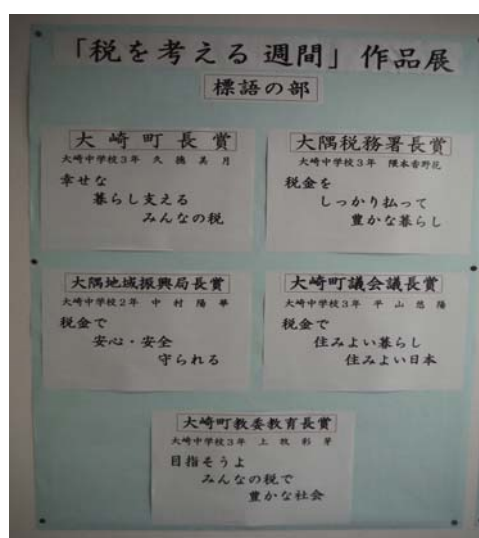 「税を考える週間」作品展
標語の部
大崎町長賞
大崎中学校3年 久徳美月
幸せな
暮らし支える
みんなの税
大隅税務署長賞
大崎中学校3年 隈本香野花
税金を
しっかり払って
豊かな暮らし
大隅地域振興局長賞
大崎中学校2年 中村陽華
税金で
安心・安全
守られる
大崎町議会議長賞
大崎中学校3年 平山悠陽
税金で
住みよい暮らし
住みよい日本
大崎町教委教育長賞
大崎中学校3年 上牧彩芽
目指そうよ
みんなの税で
豊かな社会